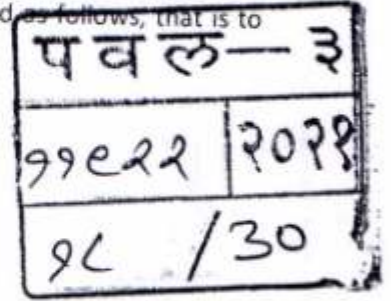 d as follows, that is to
प व ल — ३
११९२२ २०२१
१८ / ३०